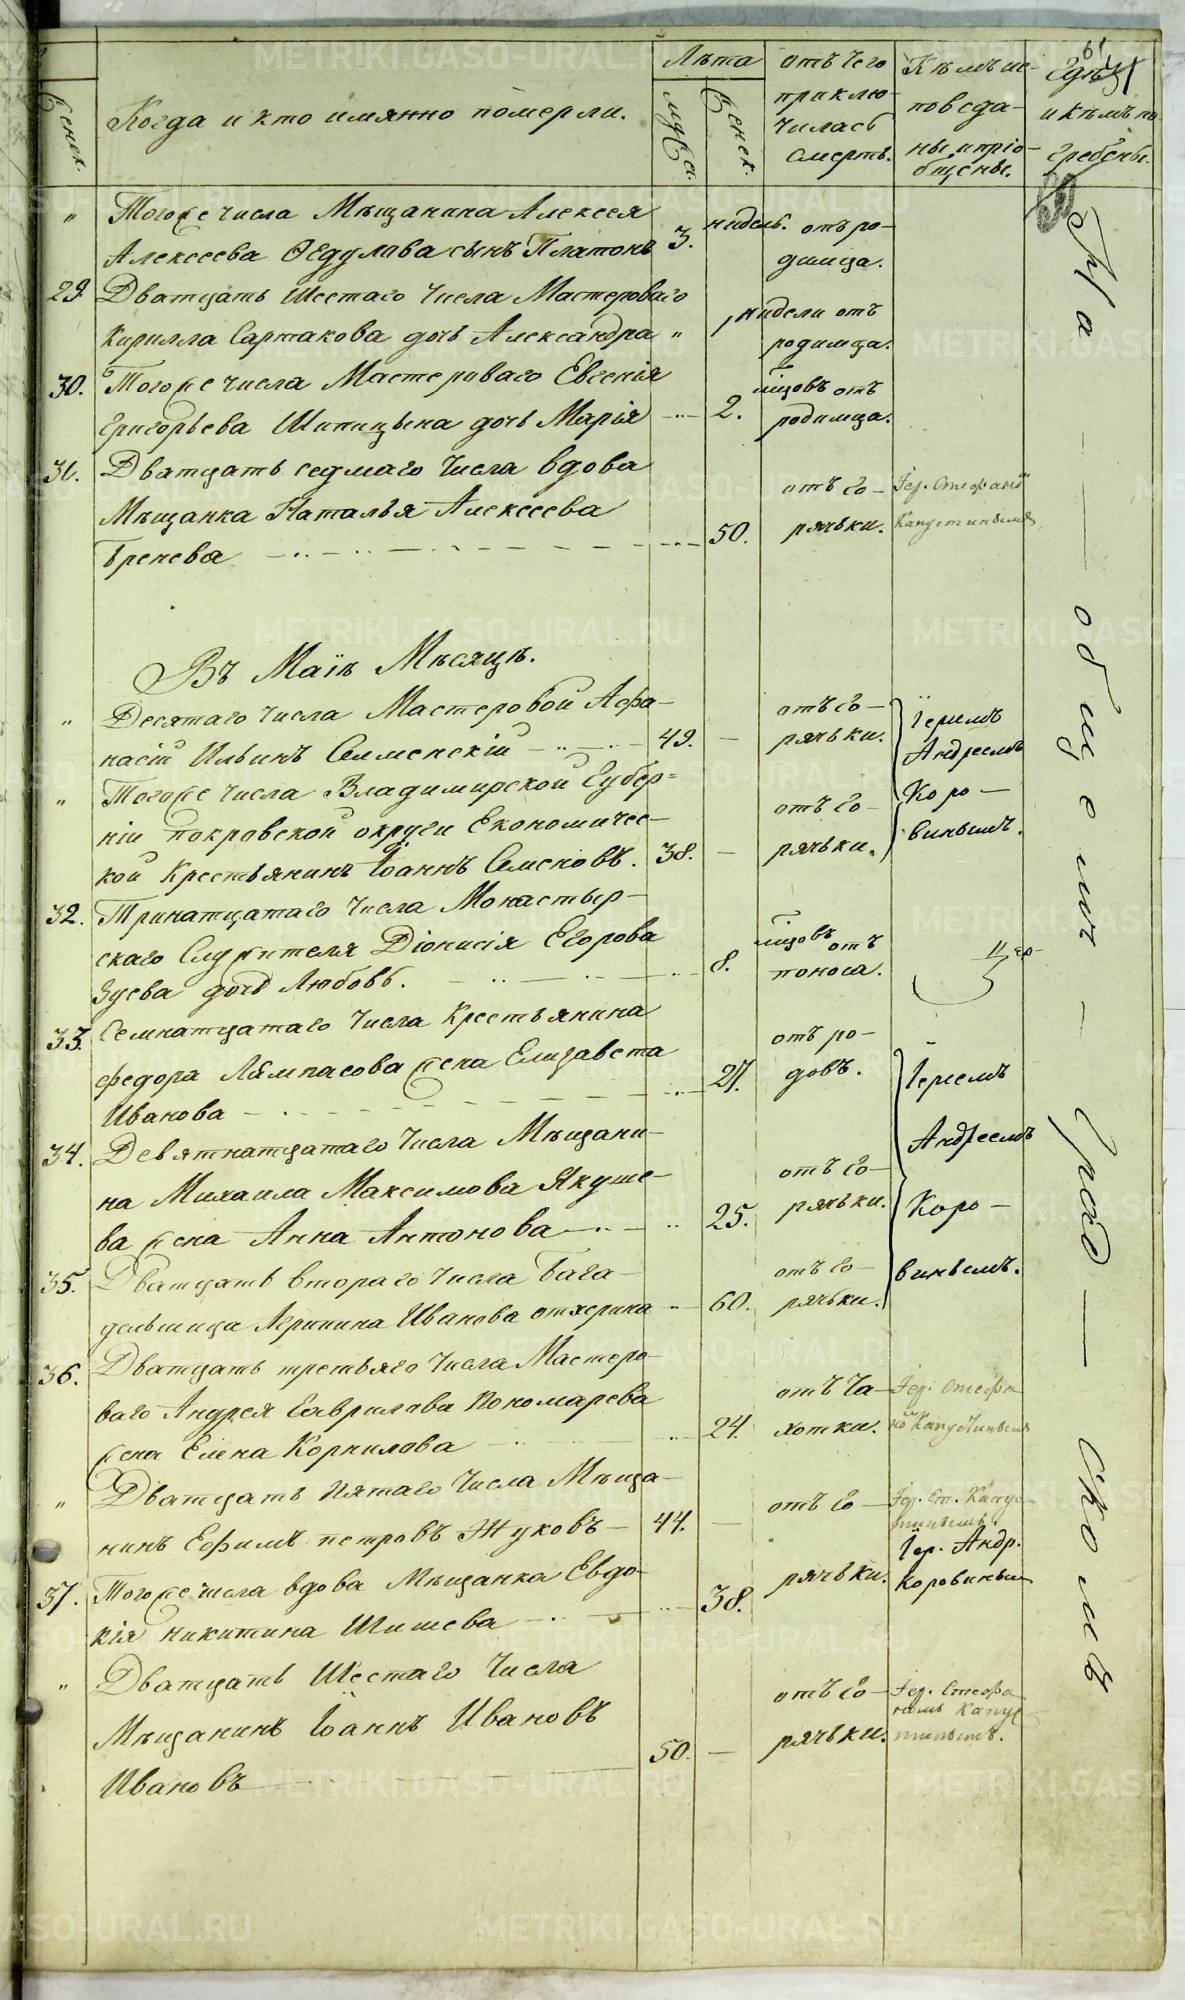 Женск.
Когда и кто имянно померли.
Лѣта
Мужск.
Женск.
отъ чего
приклю-
чилась
смерть.
Кѣмъ ис-
поведа-
ны и прiо-
бщены.
61
Гдѣ
и кѣмъ по
гребены.
" Тогоже числа Мѣщанина Алексея
Алексеева Ѳедулова сынъ Платонъ 3. недель. отъ ро-
димца.
29. Дватцать шестаго числа Мастероваго
Кирилла Сартакова дочь Александра " 1 недели отъ
родимца.
30. Тогоже числа Мастероваго Евгенiя
Григорьева Шипицына дочь Марiя 2. мцовъ отъ
родимца.
31. Дватцать седмаго числа вдова
Мѣщанка Наталья Алексеева
Бренева 50. отъ го-
рячьки. Iер. Стефаном
Капустинымъ
Въ Маiѣ Мѣсяцѣ.
" Десятаго числа Мастеровой Афа-
насiй Ильинъ Селменскiй 49. отъ го-
рячьки. Iереемъ
Андреемъ
" Тогоже числа Владимирской Губер=
нiи покровской округи Економичес-
кой Крестьянинъ Iоаннъ Семеновъ. 38. отъ го-
рячьки. Коро-
винымъ.
32. Тринатцатаго числа Монастыр-
скаго Служителя Дiонисiя Егорова
Зуева дочь Любовь. 8. мцовъ отъ
поноса.
33. Семнатцатаго числа Крестьянина
Федора Лямпасова жена Елизавета
Иванова 27. отъ ро-
довъ. Iереемъ
34. Девятнатцатаго числа Мѣщани-
на Михаила Максимова Якуше-
ва жена Анна Антонова 25. отъ го-
рячьки. Андреемъ
Коро-
35. Дватцать втораго числа Бога-
дельшица Агрипина Иванова 60. отъ го-
рячьки. винымъ.
36. Дватцать третьяго числа Мастеро-
ваго Андрея Гаврилова Пономарева
жена Елена Корнилова 24. отъ ча-
хотки. Iер. Стефа
но Капустинымъ
" Дватцать пятаго числа Мѣща-
нинъ Ефимъ петровъ Жуковъ 44. отъ го- Iер. Ст. Капус-
тинымъ.
37. Тогоже числа вдова Мѣщанка Евдо-
кiя никитина Шишева 38. рячьки. Iер. Андр.
Коровинымъ
" Дватцать Шестаго Числа
Мѣщанинъ Iоаннъ Ивановъ
Ивановъ 50. отъ го-
рячьки. Iер. Стефа
номъ Капус
тинымъ.
На общемъ градскомъ
METRIKI.GASO-URAL.RU